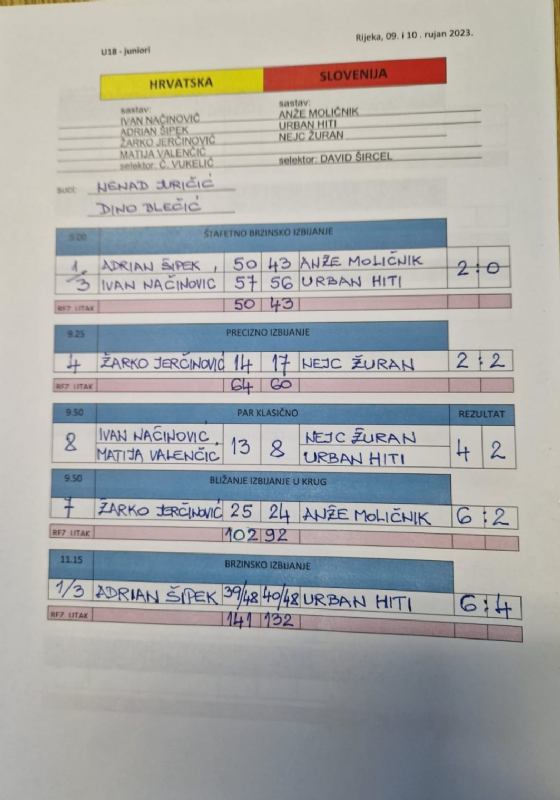 Rijeka, 09. i 10. rujan 2023.
U18 - juniori
HRVATSKA SLOVENIJA
sastav: sastav:
IVAN NAČINOVIĆ ANŽE MOLIČNIK
ADRIAN ŠIPEK URBAN HITI
ŽARKO JERČINOVIĆ NEJC ŽURAN
MATIJA VALENČIĆ
selektor: Č. VUKELIĆ selektor: DAVID ŠIRCEL
SUCI: NENAD JURIČIĆ
DINO BLEČIĆ
9.00 ŠTAFETNO BRZINSKO IZBIJANJE
1 ADRIAN ŠIPEK, 50 43 ANŽE MOLIČNIK 2:0
3 IVAN NAČINOVIC 57 56 URBAN HITI
RF7 LITAK 50 43
9.25 PRECIZNO IZBIJANJE
4 ŽARKO JERČINOVIĆ 14 17 NEJC ŽURAN 2:2
RF7 LITAK 64 60
9.50 PAR KLASIČNO REZULTAT
8 IVAN NAČINOVIC, 13 8 NEJC ŽURAN 4 2
MATIJA VALENČIĆ URBAN HITI
9.50 BLIŽANJE IZBIJANJE U KRUG
7 ŽARKO JERČINOVIĆ 25 24 ANŽE MOLIČNIK 6:2
RF7 LITAK 102 92
11.15 BRZINSKO IZBIJANJE
1/3 ADRIAN ŠIPEK 39/48 40/48 URBAN HITI 6:4
RF7 LITAK 141 132